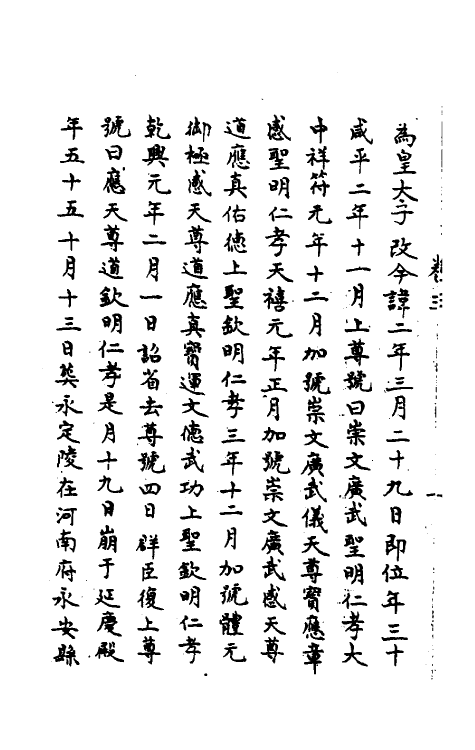 卷三
為皇太子改今諱二年三月二十九日即位年三十
咸平二年十一月上尊號曰崇文廣武聖明仁孝大
中祥符元年十二月加號崇文廣武儀天尊寳應章
感聖明仁孝天禧元年正月加號崇文廣武感天尊
道應真佑德上聖欽明仁孝三年十二月加號體元
御極感天尊道應真寳運文德武功上聖欽明仁孝
乾興元年二月一日詔省去尊號四日群臣復上尊
號曰應天尊道欽明仁孝是月十九日崩于延慶殿
年五十五十月十三日葬永定陵在河南府永安縣